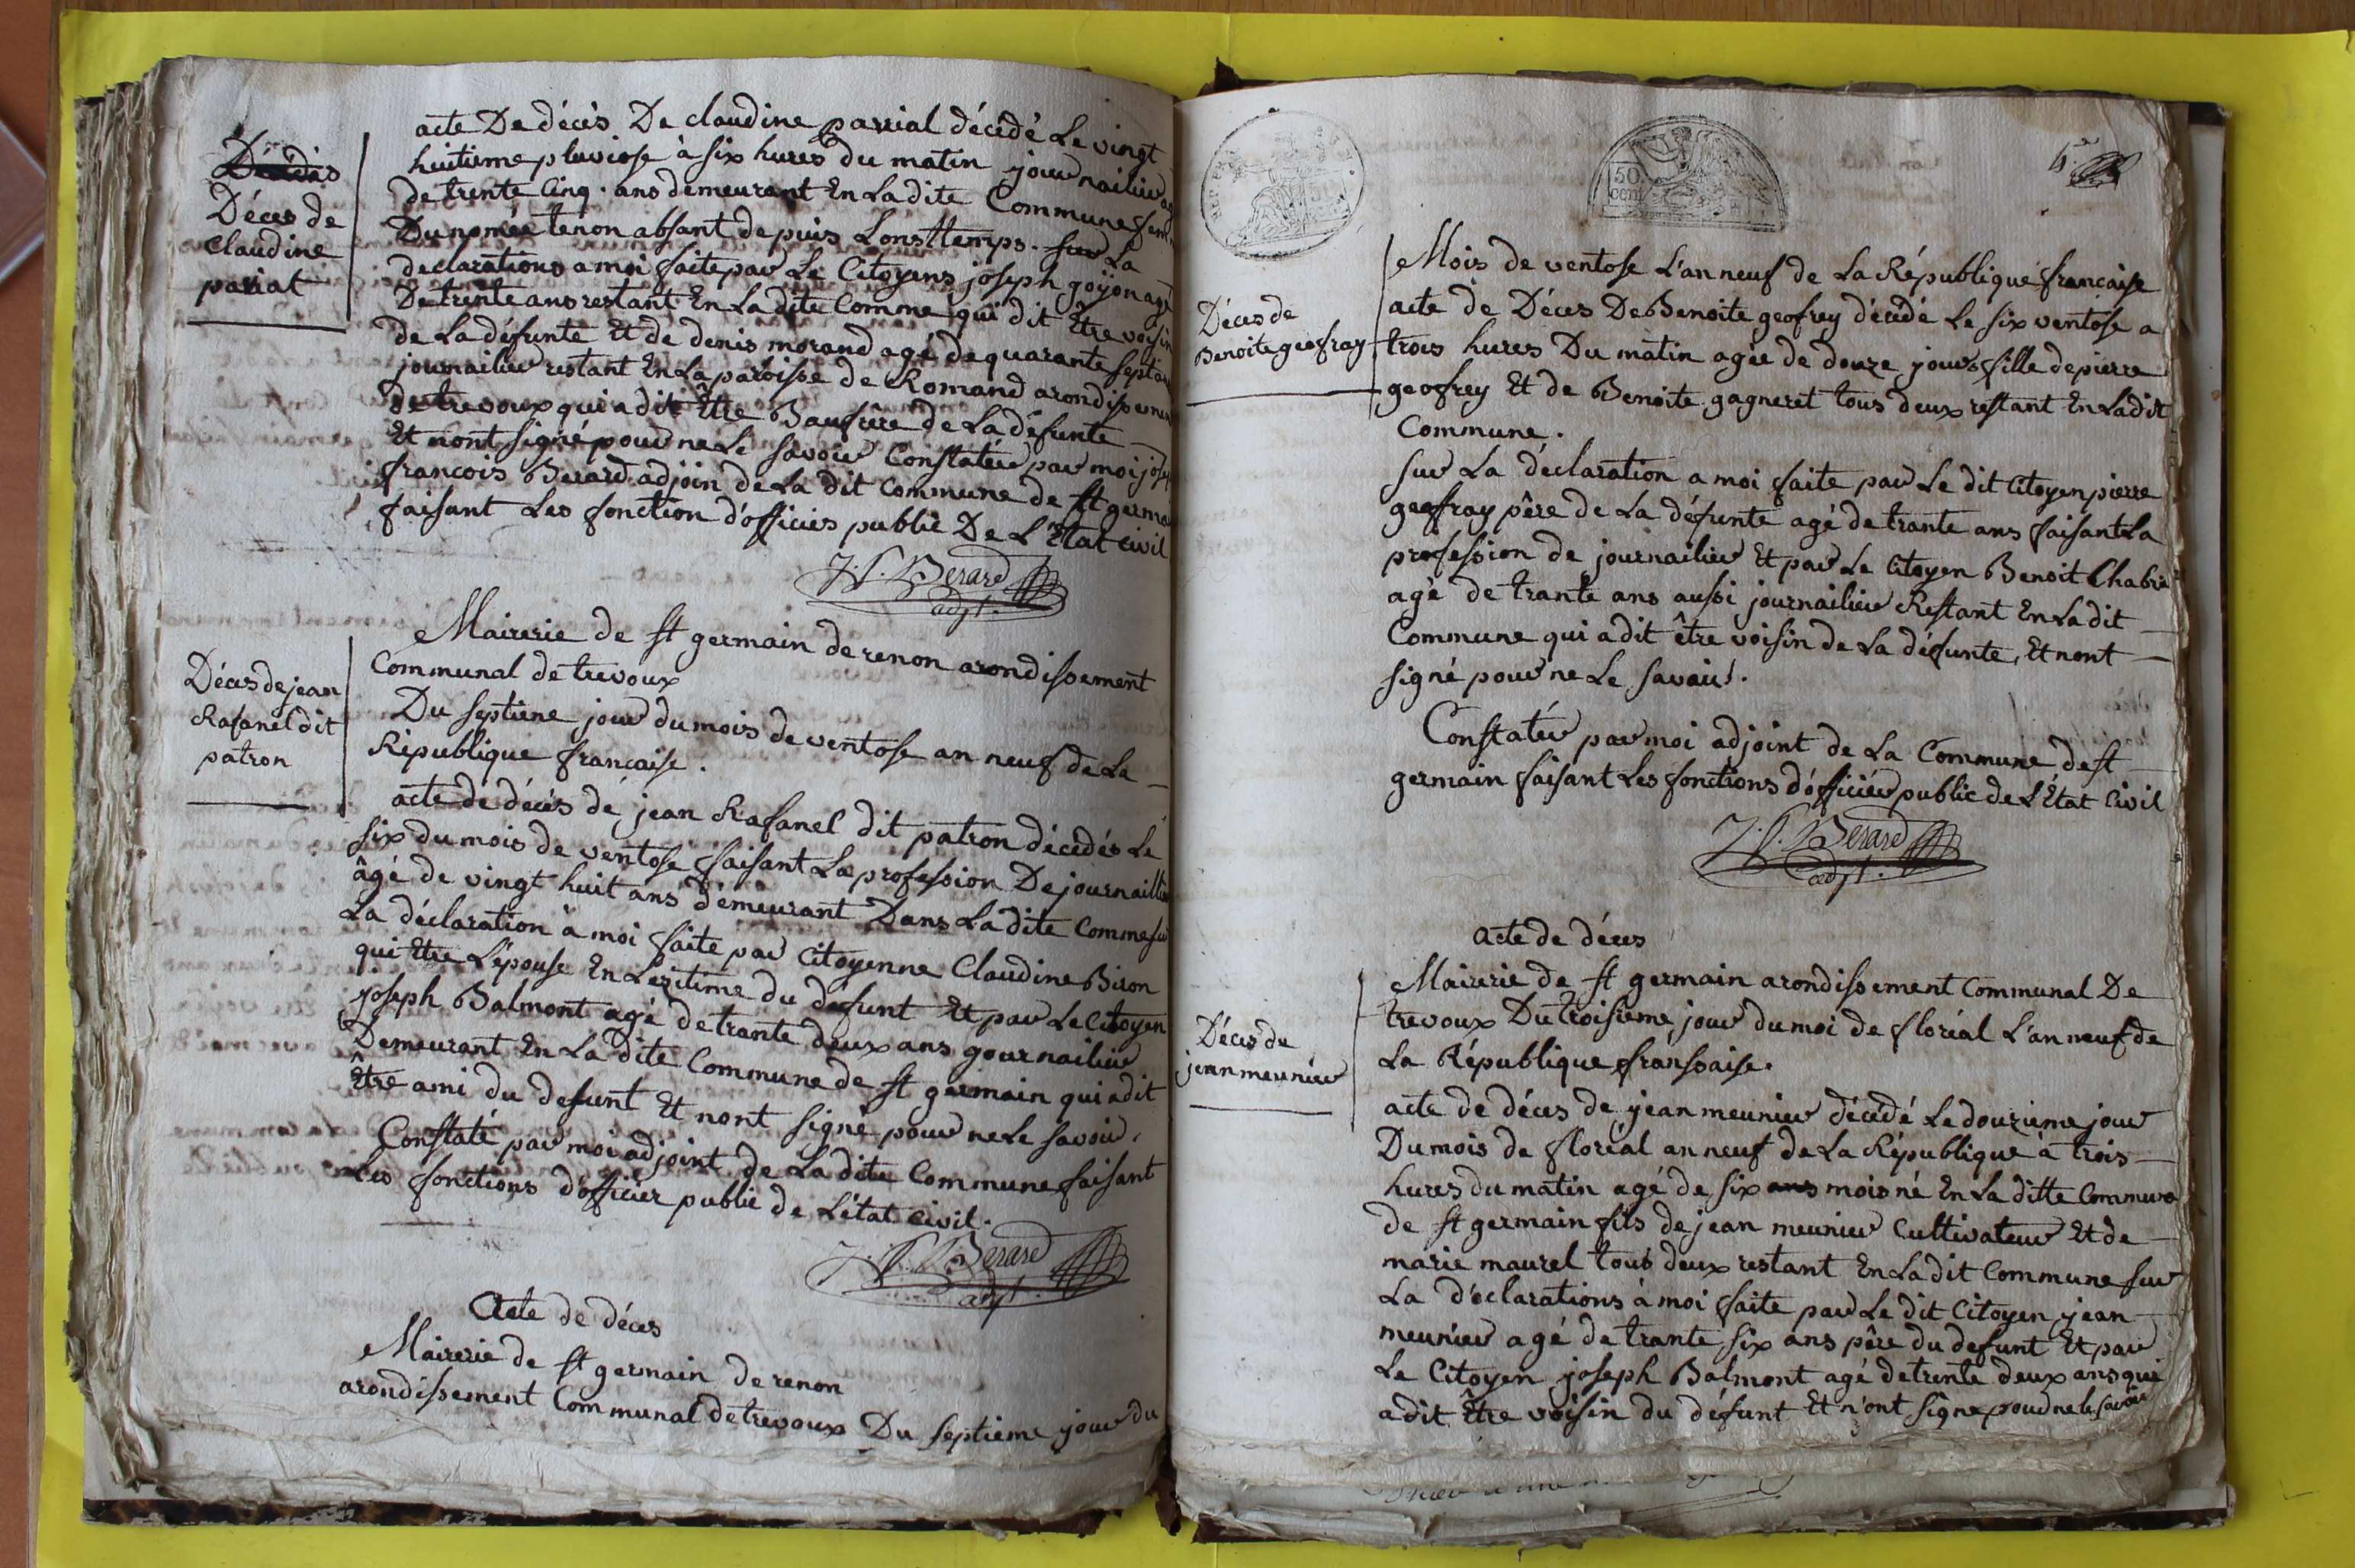 Décès de
Claudine
pariat
acte De décès De claudine parrial décédé Le vingt
huitieme pluviose à six hures du matin journailiere
de trente Cinq. ans demeurant En Ladite Commune
Du nomée tenon absant depuis Lonsttemps. sur La
declarations a moi faite par Le Citoyens joseph goyon agé
De trente ans restant En Ladite Comme qui dit Être voisin
de La défunte Et de denis morand agé de quarante sept ans
journailier restant En La paroisse de Romand arondissement
de trevoux qui a dit Être Baufrere de La défunte
Et nont signé pour ne Le savoir Constatér par moi
francois Berard adjoin de La dit Commune de St germa
faisant Les fonction d'officies public De L'État Civil
J. f. Berard
adjt.
Mairerie de St germain de renon arondissement
Communal de trevoux
Décès de jean
Rafanel dit
patron
Du septiene jour du mois de ventose an neuf de La
République francaise.
acte de décès de jean Rafanel dit patron décédés Le
six du mois de ventose faisant La profession De journaillier
âgé de vingt huit ans demeurant Dans Ladite Comme sur
La déclaration à moi faite par Citoyenne Claudine Biron
qui Etre L'épouse En Lezitime du défunt Et par Le Citoyen
joseph Balmont agé de trante deux ans gournailier
Demeurant En La Dite Commune de St germain qui a dit
Être ami du defunt Et nont signé pour ne Le savoir.
Constaté par moi adjoint de La ditu Commune faisant
Les fonctions d'officier public de L'état Civil.
J. f. Berard
adjt.
Acte de déces
Mairerie de St germain de renon
arondissement Communal de trevoux Du septieme jour du
50
cent
Décès de
Benoite geofray
Mois de ventose L'an neuf de La République francaise
acte de Déces De Benoite geofrey décédé Le six ventose a
trois hures Du matin agée de douze jours fille de pierre
geofrey Et de Benoite gagneret tous deux restant En Ladit
Commune.
sur La déclaration a moi faite par Le dit Citoyen pierre
geofray père de La défunte agé de trante ans faisant La
profession de journailier Et par Le Citoyen Benoit Chabri
agé de trante ans aussi journailier Restant En La dit
Commune qui a dit être voisin de La défunte, Et nont
signé pour ne Le savair.
Constatér par moi adjoint de La Commune de St
germain faisant Les fonctions d'officiér public de L'État Civil
J. f. Berard
adjt.
acte de déces
Décès de
jean meunier
Mairerie de St germain arondissement Communal De
trevoux Du troisieme jour du moi de floréal L'an neuf de
La République franssaise.
acte de déces de jean meunier décédé Le douzieme jour
Du mois de floréal an neuf de La République à trois
hures du matin agé de six ans mois né En La ditte Commune
de St germain fils de jean meunier Cultivateur Et de
marie maurel tous deux restant En La dit Commune sur
La déclarations à moi faite par Le dit Citoyen jean
meunier agé de trante six ans père du defunt Et par
Le Citoyen joseph Balmont agé de trente deux ans qui
a dit Être voisin du défunt Et n'ont signe pour ne le savoir